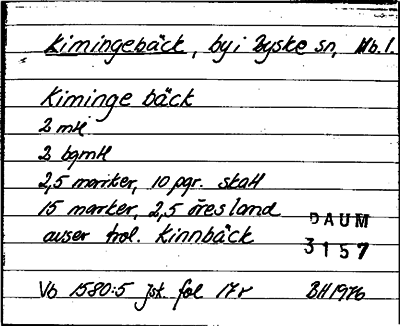 Kimingebäck, by i Byske sn, Vb. l.
Kiminge bäck
2 mtl
2 bgmtl
2,5 marker, 10 pgr. skatt
15 marker, 2,5 öresland
avser trol. Kinnbäck
DAUM
3157
Vb 1580:5 Jsk. fol 17r BH 1976